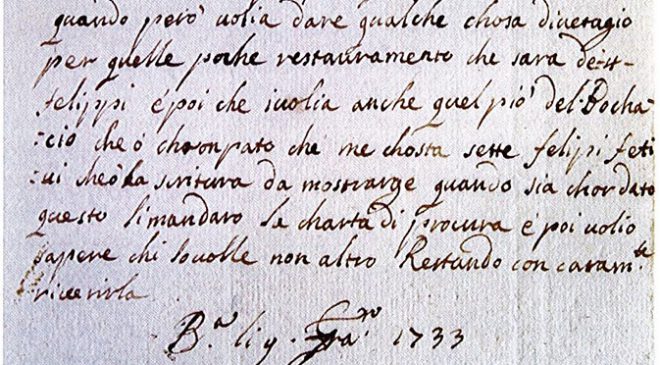 quando però uolia dare qualche chosa diuetagio
per quelle poche restauramento che sara de
felippi é poi che iuolia anche quel pió del Bocha
:cio che ó chronpato che me chosta sette felipi feti
:ui che ò la scritura da mostrarge quando sia chordato
questo li mandaro la charta di procura é poi uolio
sapere chi louolle non altro Restando con caram.te
riuerirla
B.a li 9. 1733